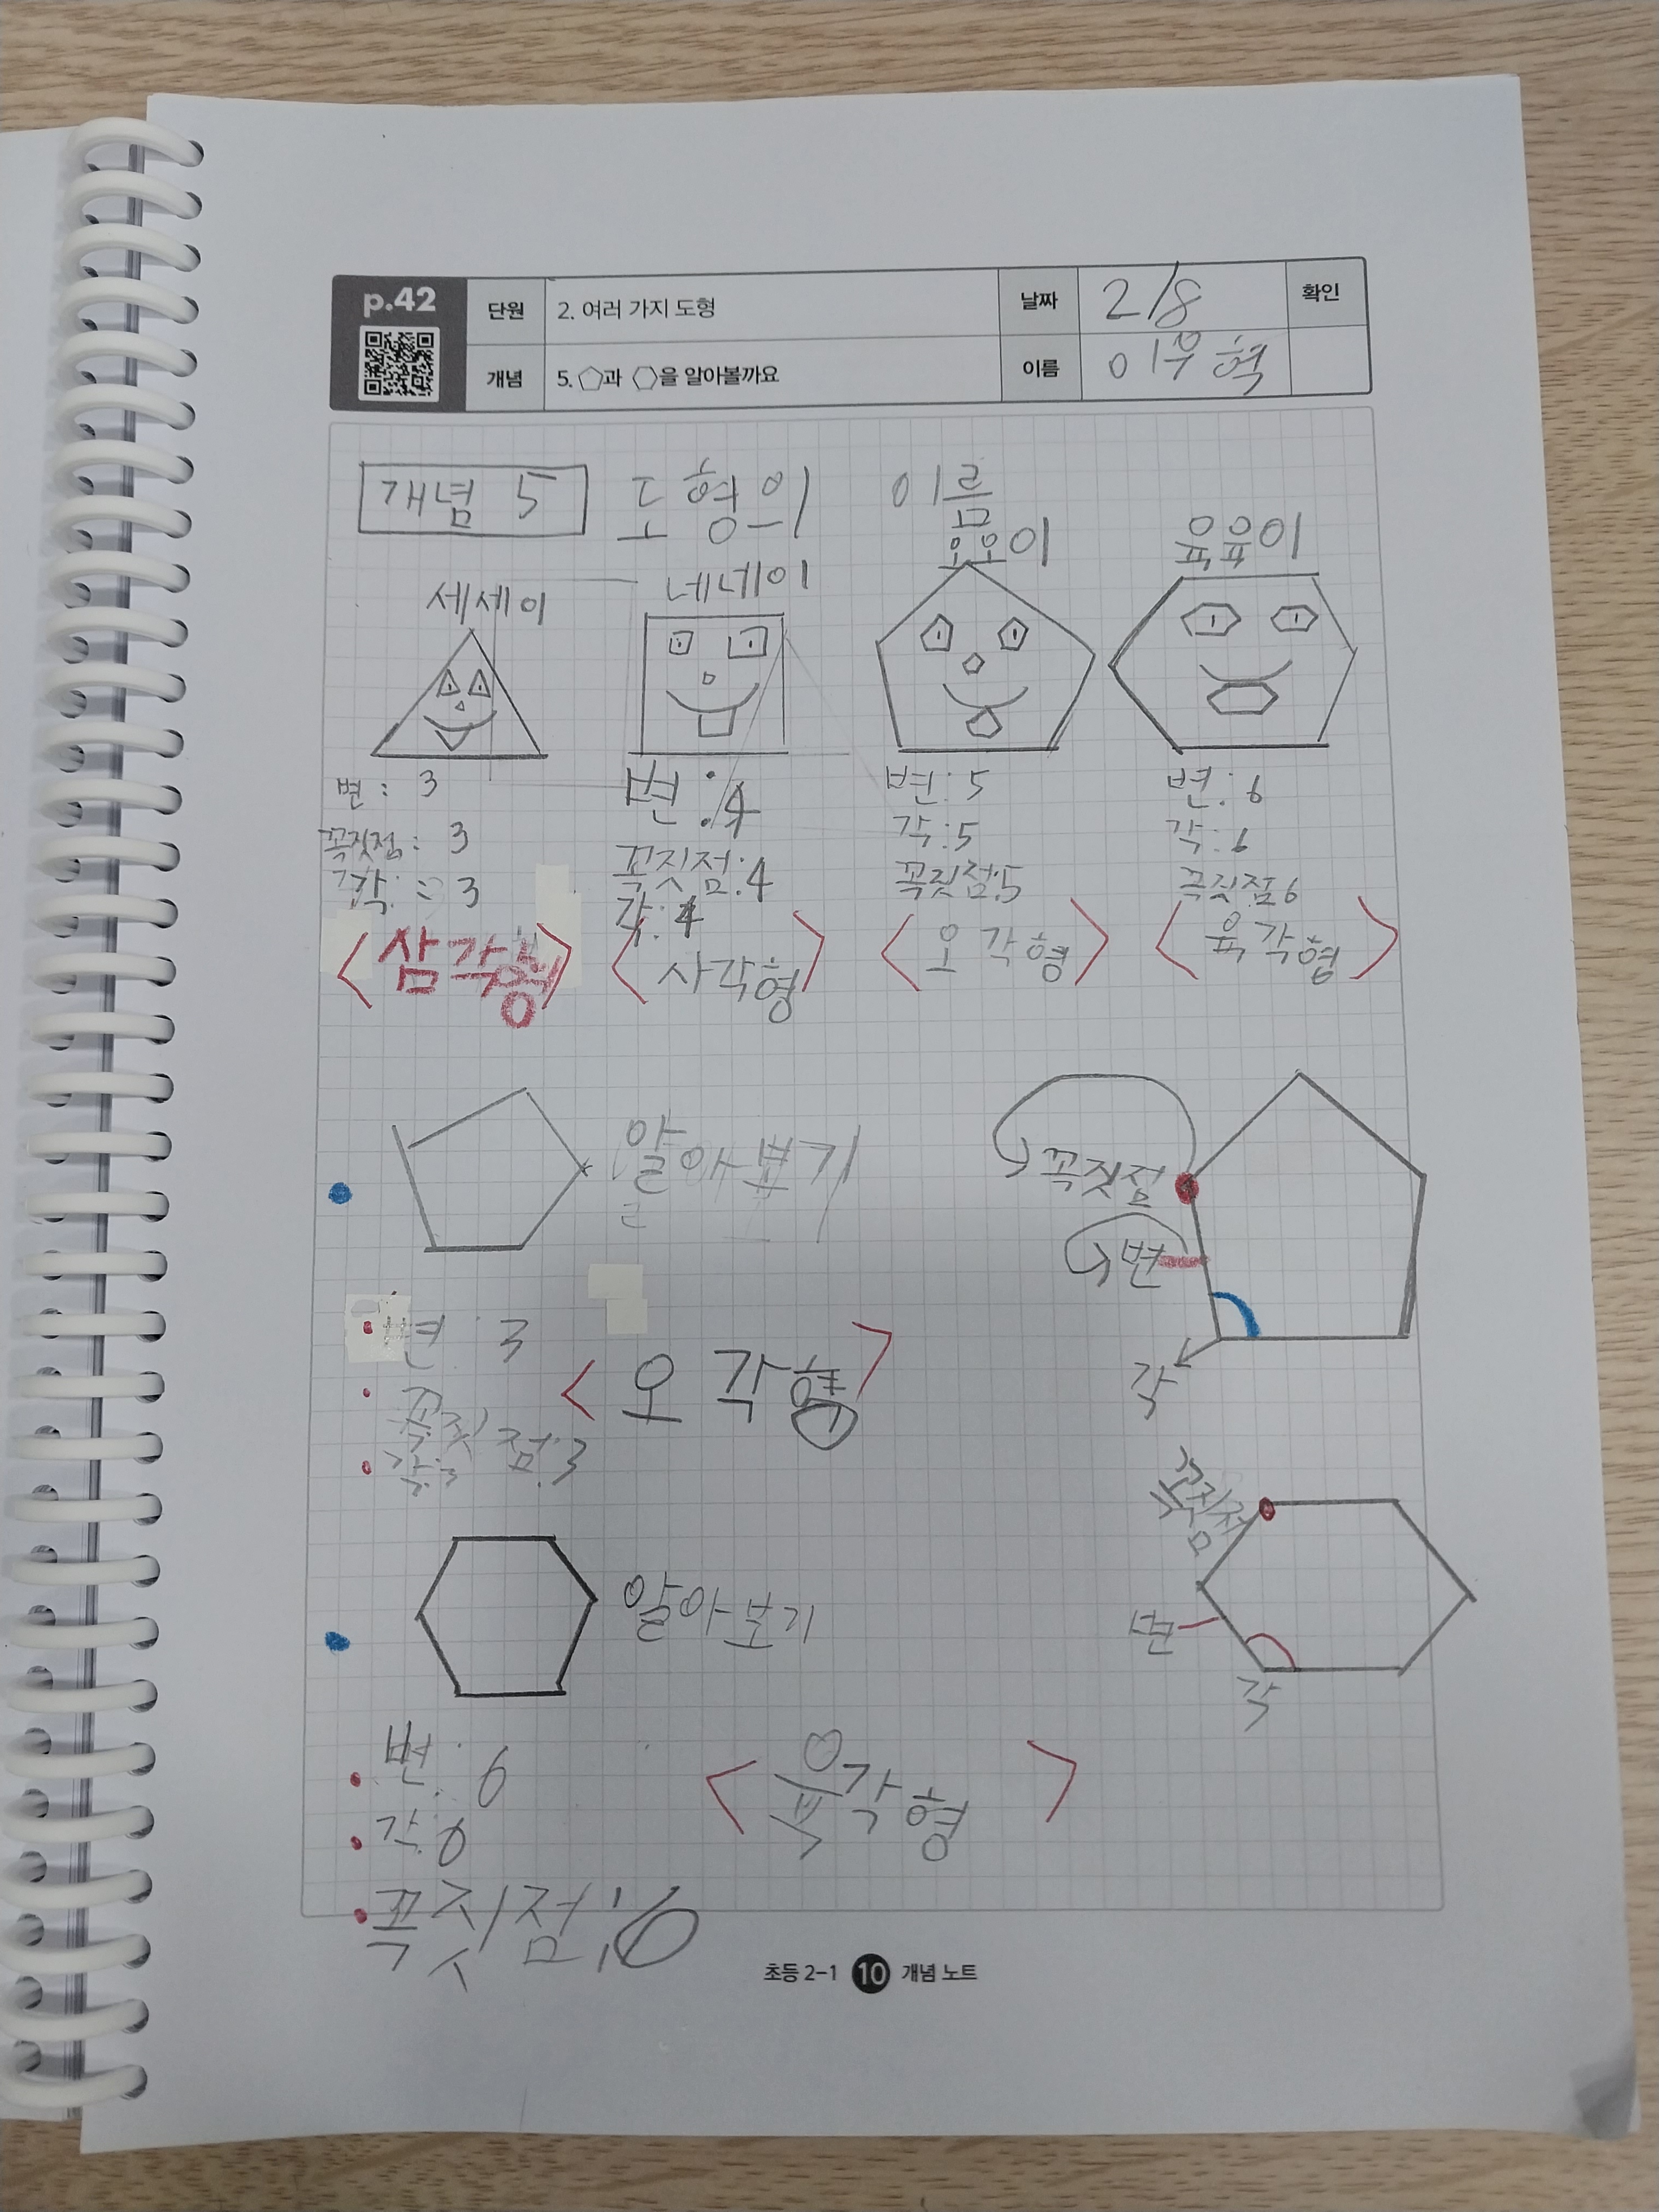 p.42
단원 2. 여러 가지 도형 날짜 2/8 확인
개념 5. 과 을 알아볼까요 이름 이우혁
개념 5 도형의 이름
세세이 네네이 오오이 육육이
변: 3 변:4 변:5 변:6
꼭짓점: 3 꼭짓점:4 각:5 각:6
각: 3 각:4 꼭짓점:5 꼭짓점6
<삼각형> <사각형> <오각형> <육각형>
알아보기
꼭짓점
변
각
변: 3
꼭짓점:3
각:3
<오각형>
꼭짓점
변
각
알아보기
변: 6
각:6
꼭짓점:6
<육각형>
초등 2-1 10 개념 노트